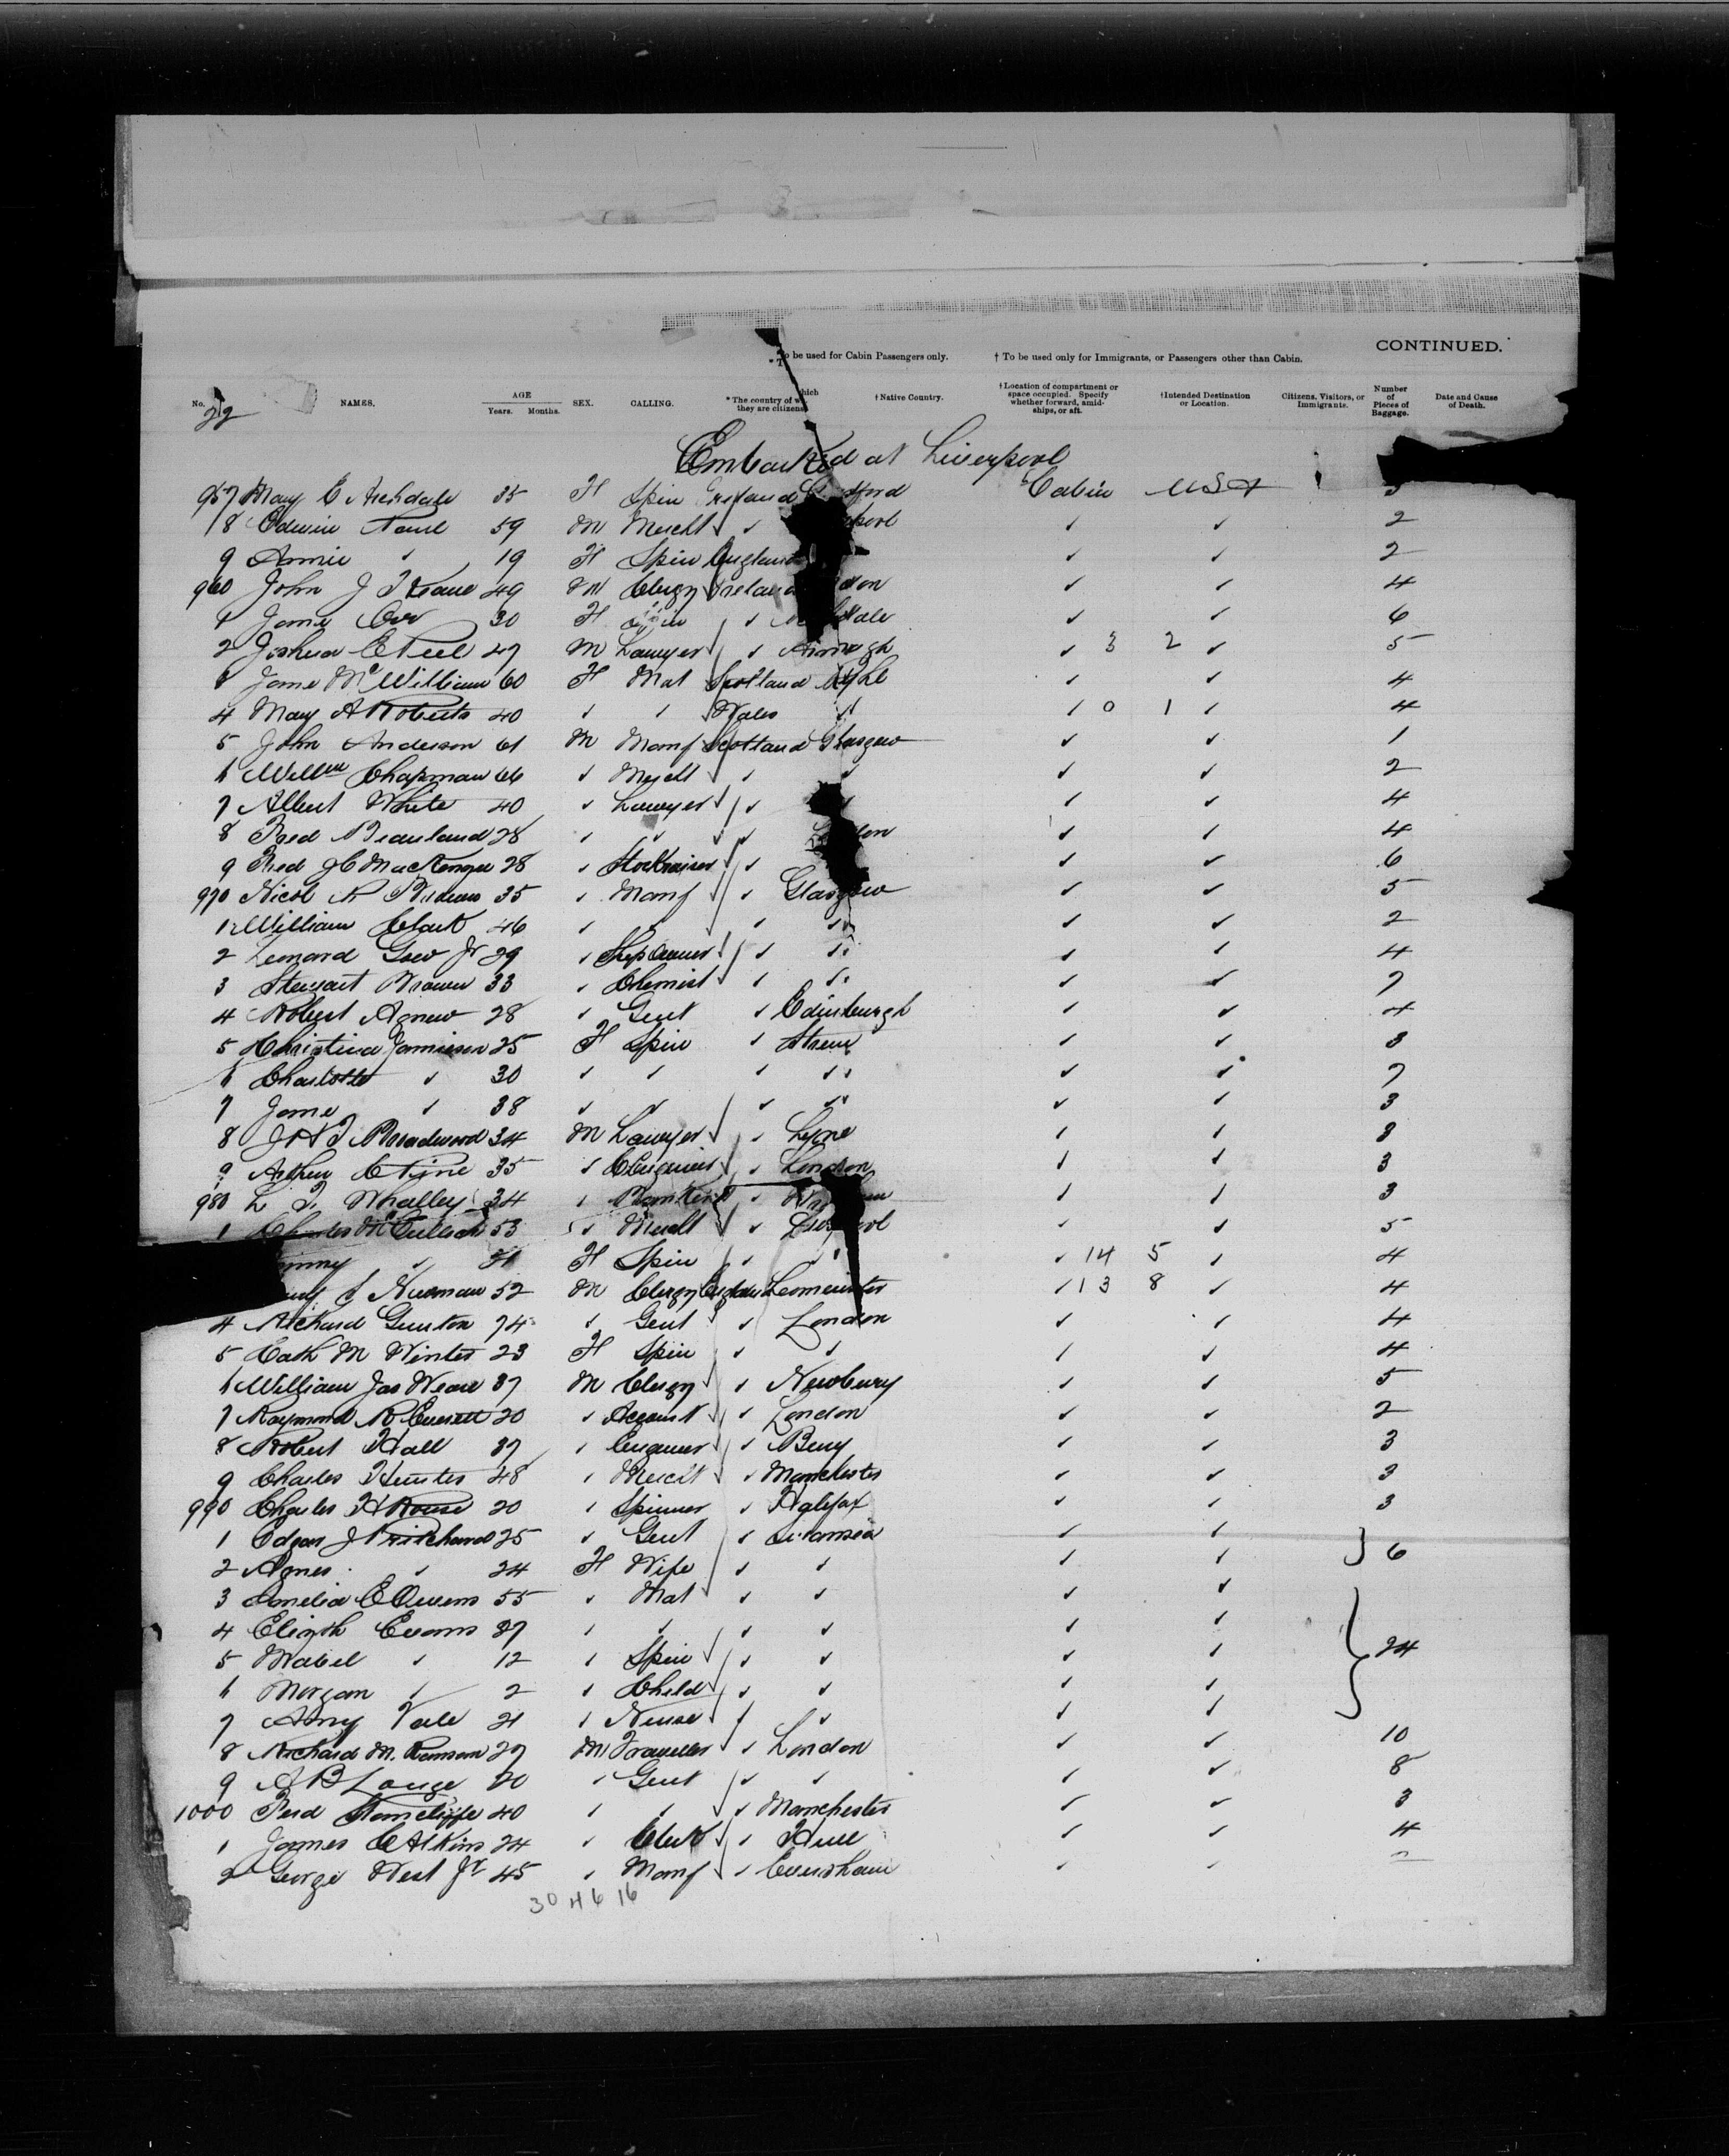 CONTINUED.
* To be used for Cabin Passengers only. † To be used only for Immigrants, or Passengers other than Cabin.
No. NAMES. AGE Years. Months. SEX. CALLING. * The country of which they are citizens. † Native Country. † Location of compartment or space occupied. Specify whether forward, amid-ships, or aft. † Intended Destination or Location. Citizens, Visitors, or Immigrants. Number of Pieces of Baggage. Date and Cause of Death.
22
Embarked at Liverpool
957 Mary E Archdale 35 F Spin Cabin USA
8 Edwin 59 M Mercht ✓ ✓ ✓ 2
9 Annie ✓ 19 F Spin England ✓ ✓ 2
960 John J 49 M Clergy Ireland ✓ ✓ 4
1 Jane Orr 30 F ✓ ✓ ✓ 6
2 Joshua C Peel 47 M Lawyer ✓ Armagh ✓ 3 2 ✓ 5
3 Jane McWilliam 60 F Mat Scotland ✓ ✓ 4
4 Mary A Roberts 40 ✓ ✓ Wales ✓ 0 1 ✓ 4
5 John Anderson 61 M Manf Scotland Glasgow ✓ ✓ 1
6 Willm Chapman 66 ✓ Mercht ✓ ✓ ✓ ✓ 2
7 Albert White 40 ✓ Lawyer ✓ ✓ ✓ 4
8 Fred Beauland 28 ✓ ✓ ✓ London ✓ ✓ 4
9 Fred MacKenzie 28 ✓ Stockraiser ✓ ✓ ✓ 6
970 Nicol 35 ✓ Manf ✓ Glasgow ✓ ✓ 5
1 William Clark 46 ✓ ✓ ✓ ✓ ✓ ✓ 2
2 Leonard Gow Jr 29 ✓ Shipowner ✓ ✓ ✓ ✓ 4
3 Stewart Brown 33 ✓ Chemist ✓ ✓ ✓ ✓ 7
4 Robert Agnew 28 ✓ Gent ✓ Edinburgh ✓ ✓ 4
5 Christina Jamieson 25 F Spin ✓ ✓ ✓ 3
6 Charlotte ✓ 30 ✓ ✓ ✓ ✓ ✓ ✓ 7
7 Jane ✓ 38 ✓ ✓ ✓ ✓ ✓ ✓ 3
8 Broadwood 34 M Lawyer ✓ Lyne ✓ ✓ 3
9 Arthur 35 ✓ ✓ London ✓ ✓ 3
980 L Whalley 34 ✓ ✓ ✓ ✓ 3
1 Charles McCulloch 53 ✓ Mercht ✓ Liverpool ✓ ✓ 5
✓ 21 F Spin ✓ ✓ ✓ 14 5 ✓ 4
J Newman 52 M Clergy England Leominster ✓ 13 8 ✓ 4
4 Richard Gunton 74 ✓ Gent ✓ London ✓ ✓ 4
5 Cath M Winter 23 F Spin ✓ ✓ ✓ ✓ 4
6 William Jas Weare 37 M Clergy ✓ Newbury ✓ ✓ 5
7 Raymond R Everett 20 ✓ Account ✓ London ✓ ✓ 2
8 Robert Hall 37 ✓ Engineer ✓ Bury ✓ ✓ 3
9 Charles Hunter 48 ✓ Mercht ✓ Manchester ✓ ✓ 3
990 Charles H Rouse 20 ✓ Spinner ✓ Halifax ✓ ✓ 3
1 Edgar J Pritchard 25 ✓ Gent ✓ Swansea ✓ ✓
2 Agnes ✓ 24 F Wife ✓ ✓ ✓ ✓ 6
3 Amelia E Owens 55 ✓ Mat ✓ ✓ ✓ ✓
4 Elizth Evans 37 ✓ ✓ ✓ ✓ ✓ ✓
5 Mabel ✓ 12 ✓ Spin ✓ ✓ ✓ ✓ 24
6 Morgan ✓ 2 ✓ Child ✓ ✓ ✓ ✓
7 Amy Vale 21 ✓ Nurse ✓ ✓ ✓ ✓
8 Richard M. Ransom 27 M Traveller ✓ London ✓ ✓ 10
9 A B Lange 20 ✓ Gent ✓ ✓ ✓ ✓ 8
1000 Ferd 40 ✓ ✓ ✓ Manchester ✓ ✓ 3
1 James C Atkins 24 ✓ Clerk ✓ Hull ✓ ✓ 4
2 George West Jr 45 ✓ Manf ✓ Evesham ✓ ✓
30 46 16